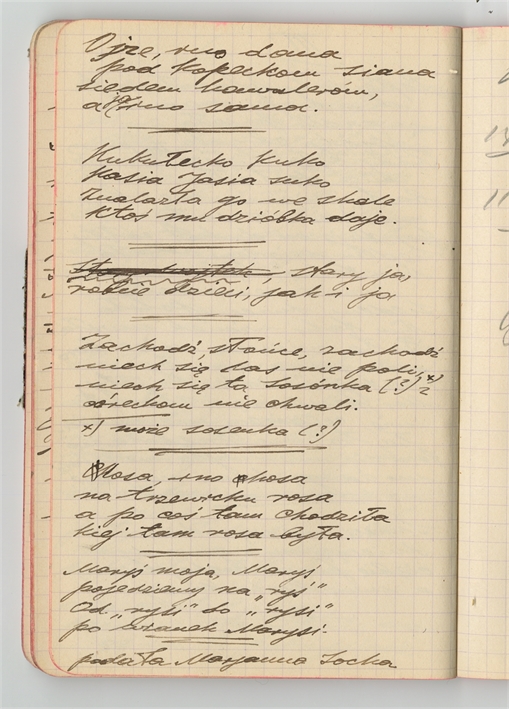 Ojze, ino dana
pod kopeckom siana
siedem kawalerów,
a ja ino sama.
Kukułecko kuko
Kasia Jasia suko
znalazła go we skale
ktoś mu dzióbka daje.
stary ja,
robiłe dzieci, jak i ja
Zachodź, słońce, zachodź
niech się las nie poli,
niech się ta sosónka (?) x)
orzechom nie chwali.
x) może sosenka (?)
Rosa, ino rosa
na trzewicku rosa
a po coś tam chodziła
kiej tam rosa była.
Maryś moja, Maryś
pojedziemy na „ryś"
Od „rysi" do „rysi"
po wianek Marysi.
podała Maryanna Socha